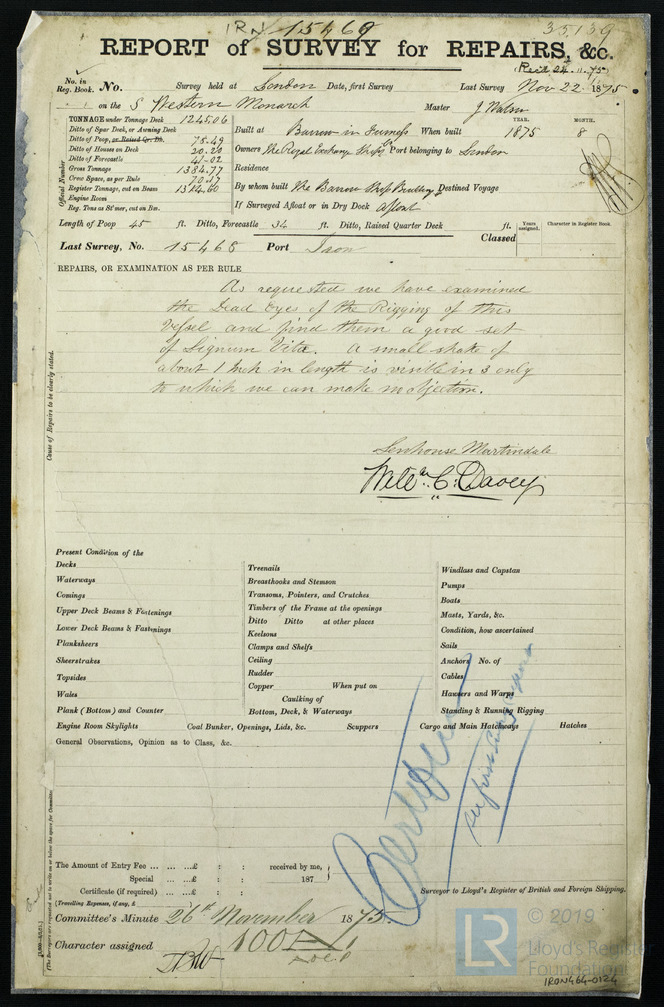 IRN 15468 35139
REPORT of SURVEY for REPAIRS, &c.
Rec'd 24.11.75
No. in Reg. Book. No. Survey held at London Date, first Survey Last Survey Nov 22 1875
on the S Western Monarch Master J Watson
TONNAGE under Tonnage Deck 1245.06
Ditto of Spar Deck, or Awning Deck
Ditto of Poop, or Raised Qr. Dk. 75.49
Ditto of Houses on Deck 20.20
Ditto of Forecastle 41.02
Gross Tonnage 1384.77
Crew Space, as per Rule 70.17
Register Tonnage, cut on Beam 1314.60
Engine Room
Reg. Tons as St'mer, cut on Bm.
Official Number
YEAR. MONTH.
Built at Barrow in Furness When built 1875 8
Owners The Royal Exchange Shipg Co Port belonging to London
Residence
By whom built The Barrow Ship Buildg Co Destined Voyage
If Surveyed Afloat or in Dry Dock Afloat
Length of Poop 45 ft. Ditto, Forecastle 34 ft. Ditto, Raised Quarter Deck ft.
Classed Years assigned. Character in Register Book.
Last Survey, No. 15468 Port Iron
REPAIRS, OR EXAMINATION AS PER RULE
As requested we have examined
the Dead Eyes of the Rigging of this
Vessel and find them a good set
of Lignum Vitæ. A small shake of
about 1 Inch in length is visible in 3 only
to which we can make no objection.
Cause of Repairs to be clearly stated.
Senhouse Martindale
Will<sup>m</sup> C. Davey
Present Condition of the
Decks
Waterways
Comings
Upper Deck Beams & Fastenings
Lower Deck Beams & Fastenings
Planksheers
Sheerstrakes
Topsides
Wales
Plank (Bottom) and Counter
Treenails
Breasthooks and Stemson
Transoms, Pointers, and Crutches
Timbers of the Frame at the openings
Ditto Ditto at other places
Keelsons
Clamps and Shelfs
Ceiling
Rudder
Copper When put on
Caulking of
Bottom, Deck, & Waterways
Windlass and Capstan
Pumps
Boats
Masts, Yards, &c.
Condition, how ascertained
Sails
Anchors No. of
Cables
Hawsers and Warps
Standing & Running Rigging
Engine Room Skylights Coal Bunker, Openings, Lids, &c. Scuppers Cargo and Main Hatchways Hatches
General Observations, Opinion as to Class, &c.
The Amount of Entry Fee ... ... ...£ : : received by me,
Special ... ...£ : : 187
Certificate (if required) ... ...£ : :
(Travelling Expenses, if any, £
Surveyor to Lloyd's Register of British and Foreign Shipping.
Committee's Minute 26th November 1875.
Character assigned 100A1
© 2019
LR Lloyd's Register
Foundation
IRON464-0124